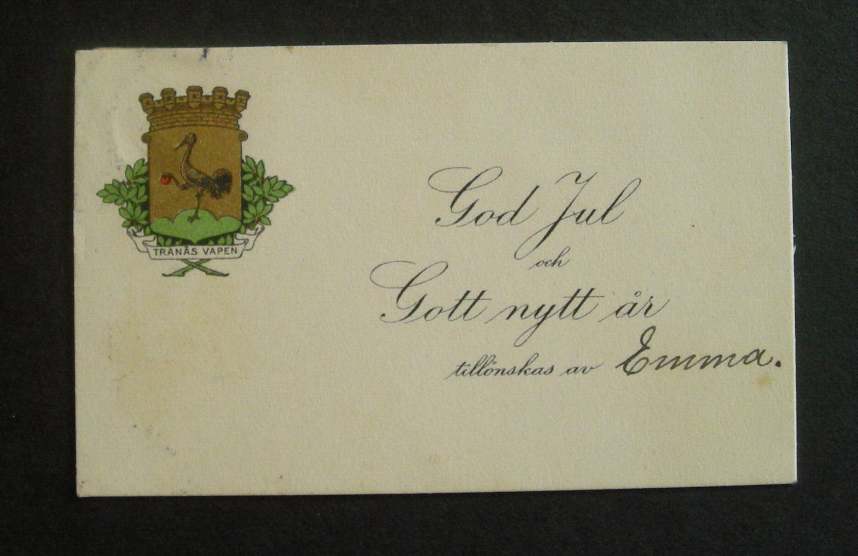 TRANÅS VAPEN
God Jul
och
Gott nytt år
tillönskas av Emma.